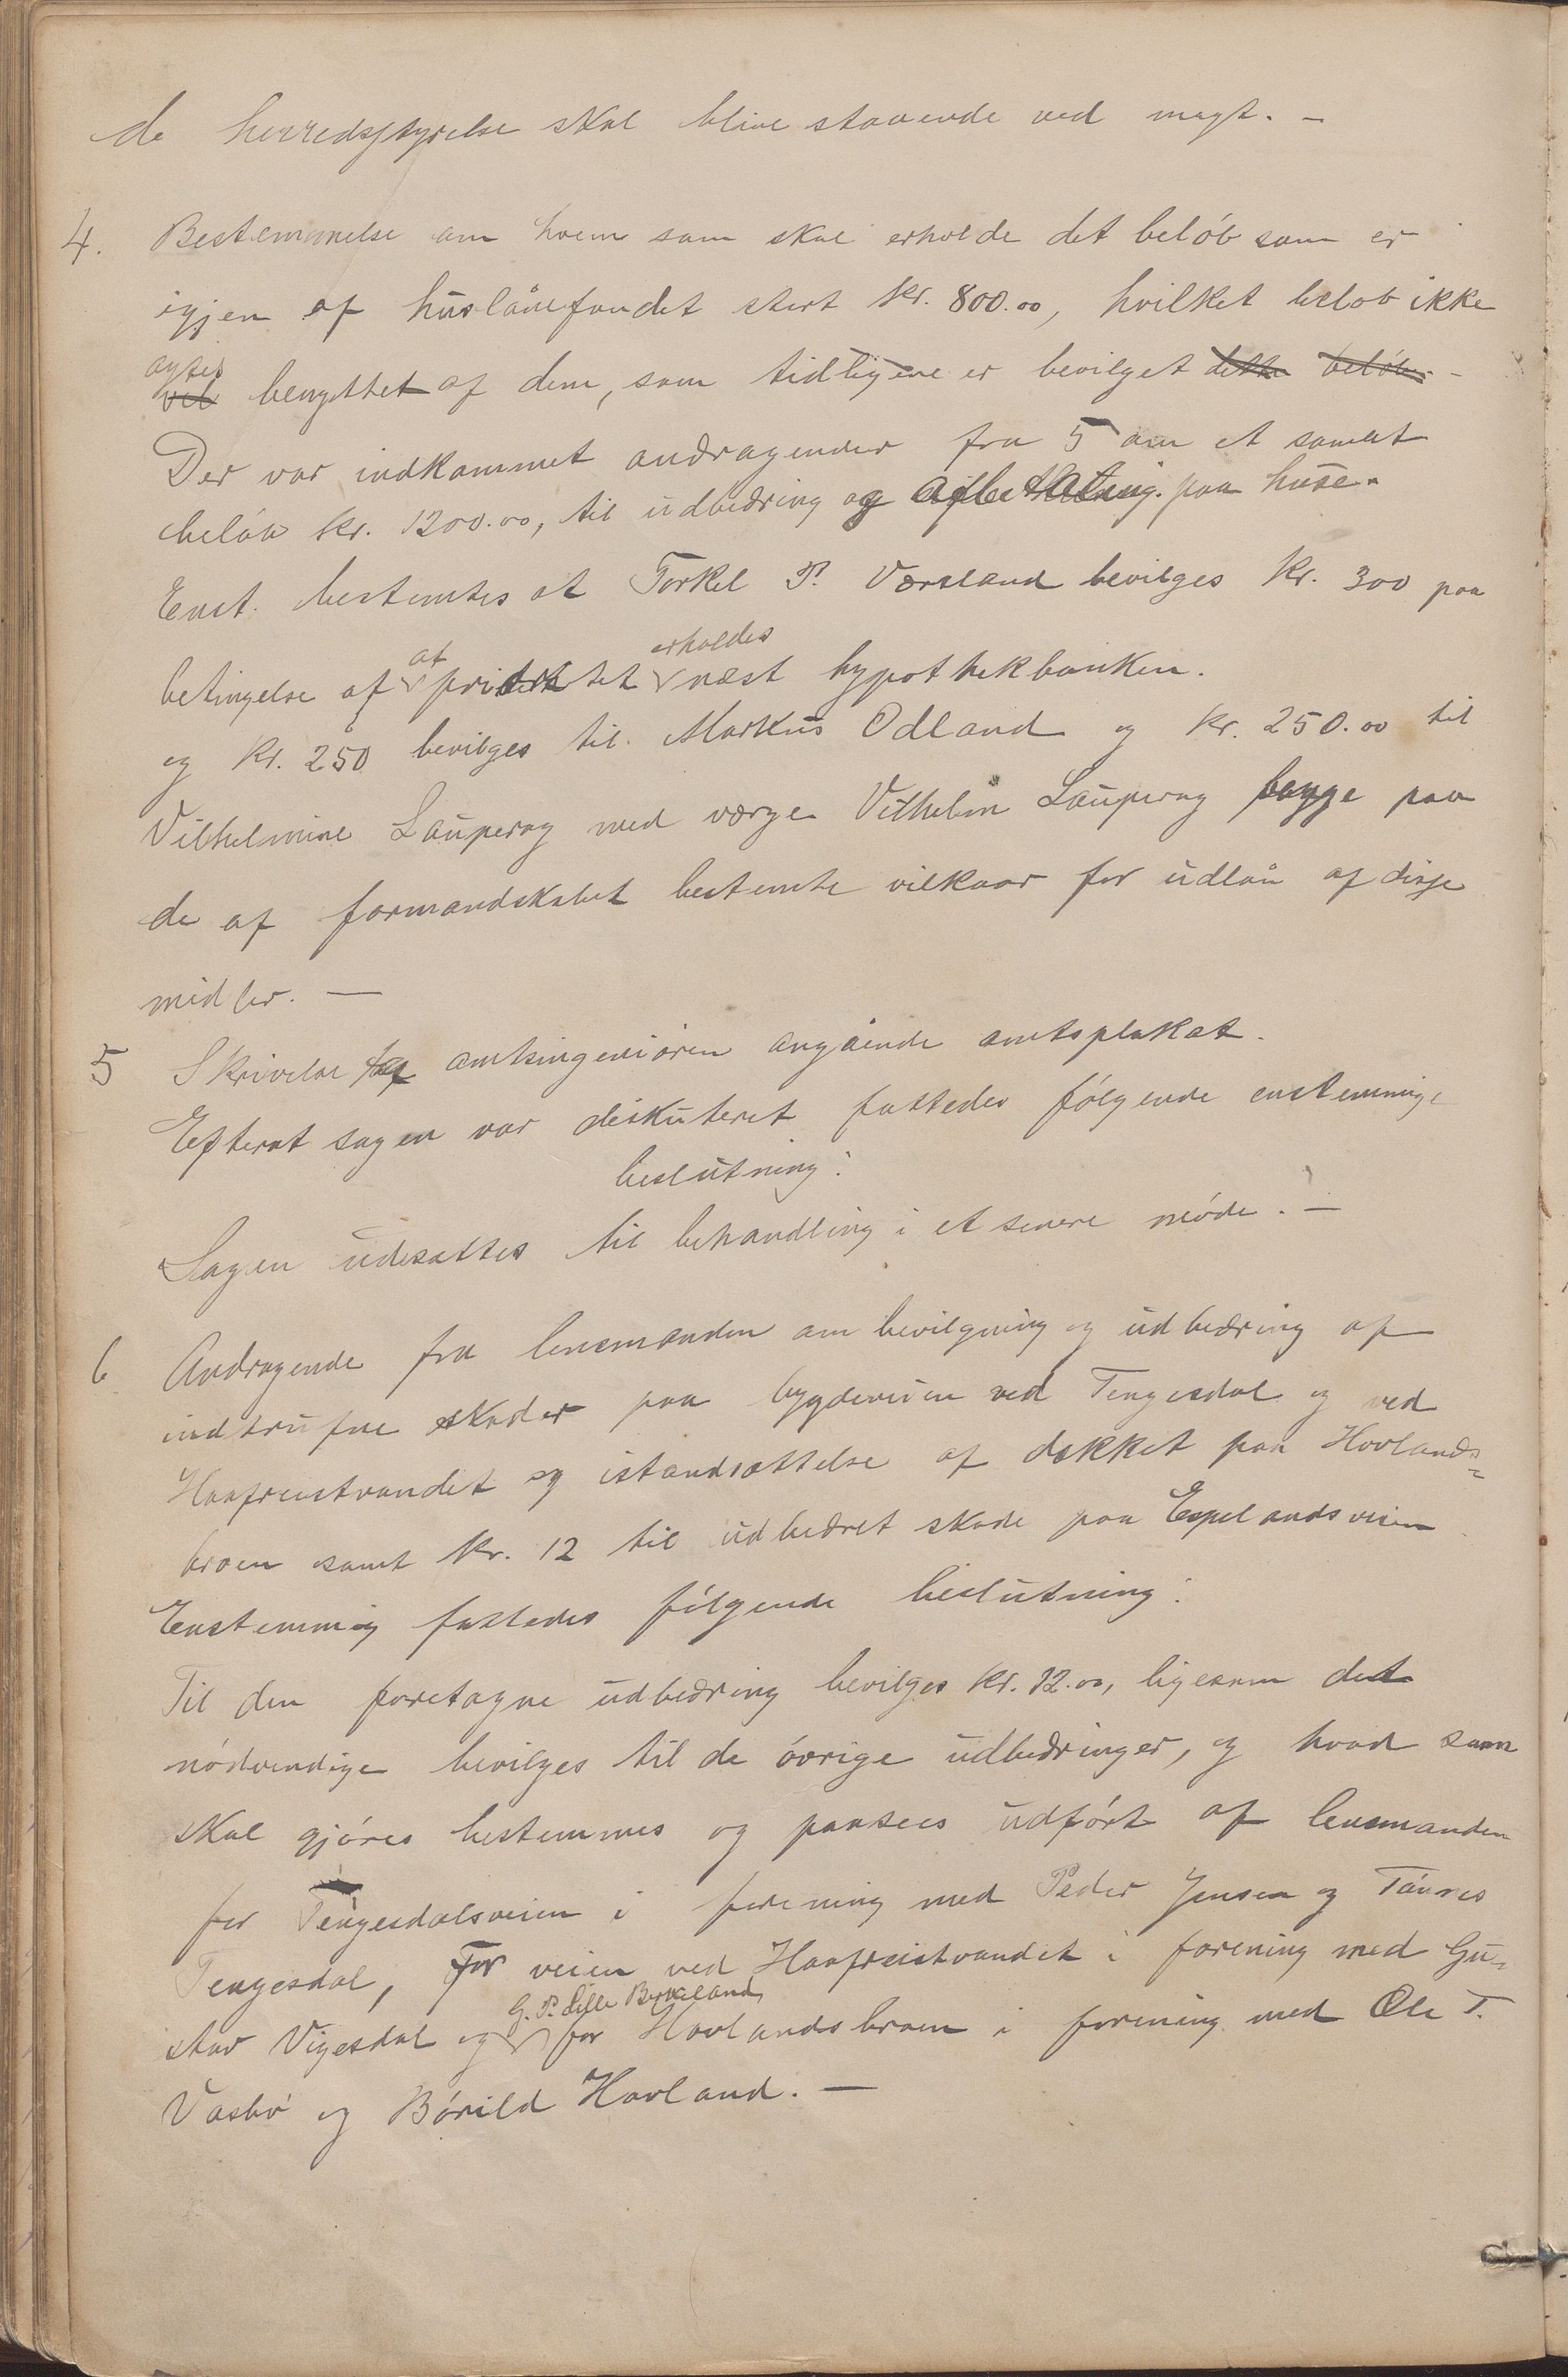 de herredsstyrelse skal blive staaende ved magt. —
4. Bestemmelse om hvem som skal erholde det beløb som er
igjen af huslånefondet stort kr. 800.00, hvilket beløb ikke
agtes
vil benyttet af dem, som tidligere er bevilget dette beløb. -
Der var indkommet andragender fra 5 om et samlet
beløb kr. 1200.00, til udbedring og afbetaling paa huse.
Enst. bestemtes at Torkel P. Værsland bevilges kr. 300 paa
at erholdes
betingelse af prioritet næst hypothekbanken.
og kr. 250 bevilges til Markus Ødland og kr. 250.00 til
Vilhelmine Lauperag med verge Vilhelm Lauperag begge paa
de af formandskabet bestemte vilkaar for udlån af disse
midler. —
5 Skrivelse af amtsingeniøren angående amtsplakat.
Efterat sagen var diskuteret fattedes følgende enstemmige
beslutning:
Sagen udsættes til behandling i et senere møde. —
6 Andragende fra lensmanden om bevilgning og udbedring af
indtrufne skader paa bygdeveien ved Tengesdal og ved
Haafreistvandet og istandsættelse af dækket paa Hovlands-
broen samt kr. 12 til udbedret skade paa Espelandsveien
Enstemmig fattedes følgende beslutning:
Til den foretagne udbedring bevilges kr. 12.00, ligesom det
nødvendige bevilges til de øvrige udbedringer, og hvad som
skal gjøres bestemmes og paasees udført af lensmanden
for Tengesdalsveien i forening med Peder Jensen og Tønnes
Tengesdal, for veien ved Haafreistvandet i forening med Gu-
G. P. Lille Birkeland,
stav Vigesdal og for Hovlandsbroen i forening med Ole T.
Vasbø og Bårild Hovland. —